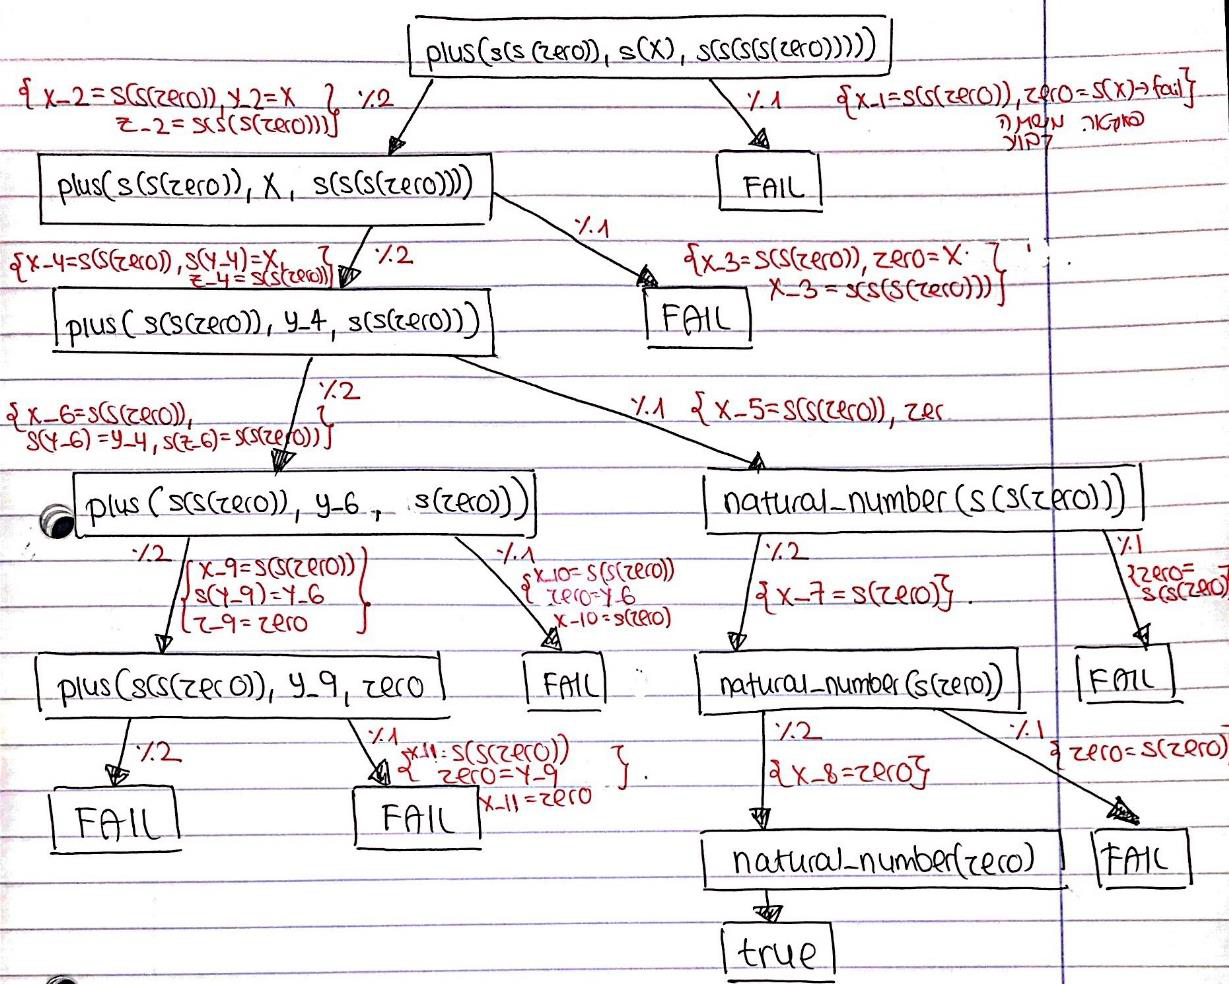 plus(s(s(zero)), s(X), s(s(s(s(zero)))))
{X_2=S(S(zero)), Y_2=X } %2
Z_2=S(S(S(zero)))}
%1 {X_1=S(S(zero)), zero=S(X)→fail}
plus(s(s(zero)), X, s(s(s(zero))))
FAIL
{X_4=S(S(zero)), S(Y_4)=X, } %2
Z_4=S(S(zero))}
%1 {X_3=S(S(zero)), zero=X
X_3=S(S(S(zero)))}
plus(s(s(zero)), y_4, s(s(zero)))
FAIL
{X_6=S(S(zero)), } %2
S(Y_6)=Y_4, S(Z_6)=S(S(zero))}
%1 {X_5=S(S(zero)), zer
plus(s(s(zero)), y_6, s(zero)))
natural_number(s(s(zero)))
%2 {X_9=S(S(zero))
S(Y_9)=Y_6
Z_9=zero }
%1 {X_10=S(S(zero))
zero=Y_6
X_10=S(zero)
%2 {X_7=S(zero)}
%1 {zero=
S(S(zero)
plus(s(s(zero)), y_9, zero
FAIL
natural_number(s(zero))
FAIL
%2
%1 {X_11=S(S(zero))
zero=Y_9 }
X_11=zero
%2 {X_8=zero}
%1 {zero=S(zero)
FAIL
FAIL
natural_number(zero)
FAIL
true